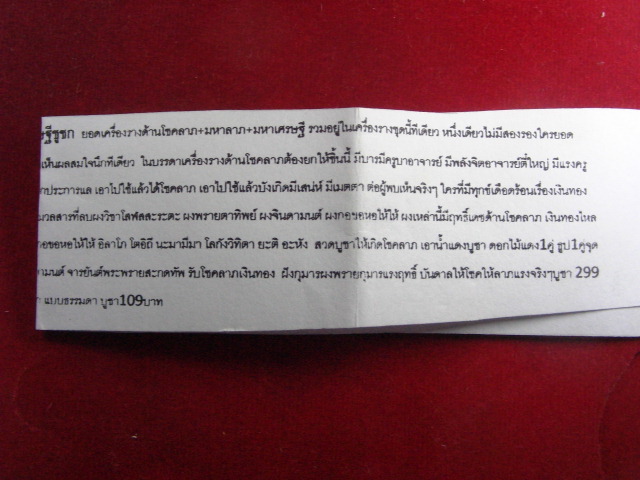 ฐีชูชก ยอดเครื่องรางด้านโชคลาภ+มหาลาภ+มหาเศรษฐี รวมอยู่ในเครื่องรางชุดนี้ทีเดียว หนึ่งเดียวไม่มีสองรองใครยอด
เห็นผลสมใจนึกทีเดียว ในบรรดาเครื่องรางด้านโชคลาภต้องยกให้ชิ้นนี้ มีบารมีครูบาอาจารย์ มีพลังจิตอาจารย์ตี๋ใหญ่ มีแรงครู
ประการแล เอาไปใช้แล้วได้โชคลาภ เอาไปใช้แล้วบังเกิดมีเสน่ห์ มีเมตตา ต่อผู้พบเห็นจริงๆ ใครที่มีทุกข์เดือดร้อนเรื่องเงินทอง
มวลสารที่ลบผงวิชาโสฬสสะระตะ ผงพรายตาทิพย์ ผงจินดามนต์ ผงกอขอหอให้ให้ ผงเหล่านี้มีฤทธิ์เดชด้านโชคลาภ เงินทองไหล
กอขอหอให้ให้ อิลาโภ โตอิถี นะมามีมา โลกังวิทิตา ยะติ อะหัง สวดบูชาให้เกิดโชคลาภ เอาน้ำแดงบูชา ดอกไม้แดง1คู่ ธูป1คู่จุด
ามนต์ จารยันต์พระพรายสะกดทัพ รับโชคลาภเงินทอง ฝังกุมารผงพรายกุมารแรงฤทธิ์ บันดาลให้โชคให้ลาภแรงจริงๆบูชา 299
แบบธรรมดา บูชา109บาท